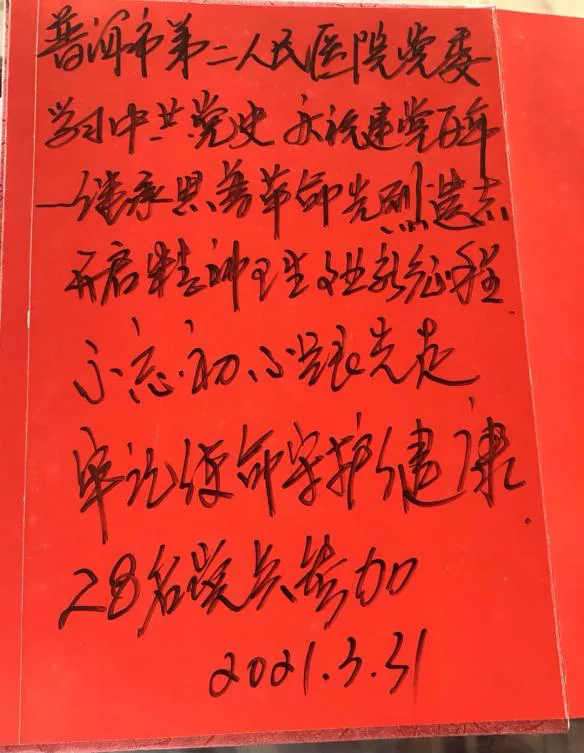 普洱市第二人民医院党委
学习中共党史 庆祝建党百年
—继承思普革命先烈遗志
开启精神卫生事业新征程
不忘初心跟党走
牢记使命守护健康
28名党员参加
2021.3.31